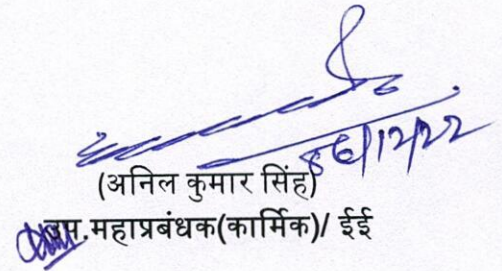 06/12/22
(अनिल कुमार सिंह)
उप.महाप्रबंधक(कार्मिक)/ ईई